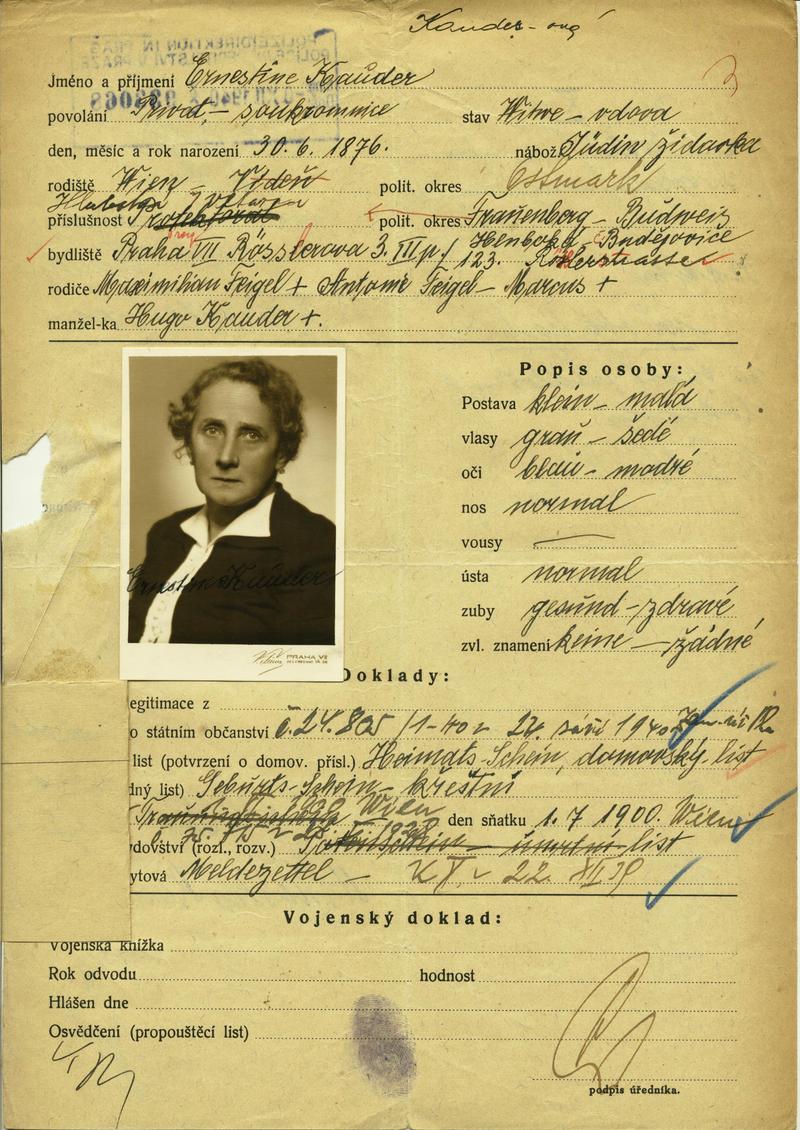 Kauder-ová
Jméno a příjmení Ernestine Kauder
povolání Privat – soukromnice stav Witwe – vdova
den, měsíc a rok narození 30. 6. 1876. nábož. Jüdin židovka
rodiště Wien – Vídeň polit. okres Ostmark
příslušnost polit. okres Frauenberg – Budweis
bydliště Praha VII Rösslerova 3. III p. / 123. Budějovice
rodiče Maximilian Feigel + Antonie Feigel – Marcus +
manžel-ka Hugo Kauder +.
Popis osoby:
Postava klein – malá
vlasy grau – šedé
oči blau – modré
nos normal
vousy
ústa normal
zuby gesund – zdravé
zvl. znamení keine – žádné
Ernestine Kauder
PRAHA VII
Doklady:
egitimace z
o státním občanství č. 24.805/1-40 z 24. září 1940
list (potvrzení o domov. přísl.) Heimats-Schein, domovský list
dný list) Geburts-Schein – křestní
Wien den sňatku 1. 7 1900. Wien
dovství (rozl., rozv.) Totenschein – úmrtní list
ytová Meldezettel – 22. XII 39
Vojenský doklad:
Vojenská knížka
Rok odvodu hodnost
Hlášen dne
Osvědčení (propouštěcí list)
podpis úředníka.